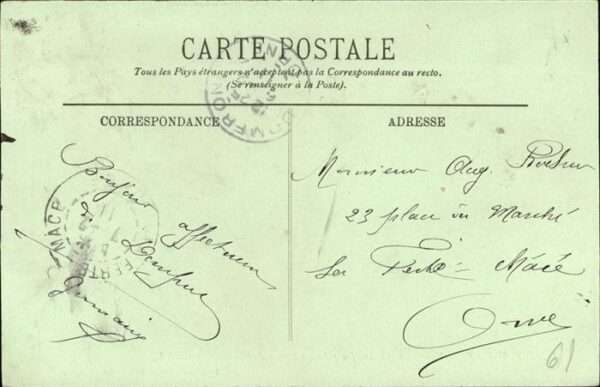 CARTE POSTALE
Tous les Pays étrangers n'acceptent pas la Correspondance au recto.
(Se renseigner à la Poste).
CORRESPONDANCE
ADRESSE
DOMFRONT
ORNE
MACÉ
Bonjour
affectueux
de
Monsieur Aug.
23 place du Marché
La Ferté-Macé
Orne
61